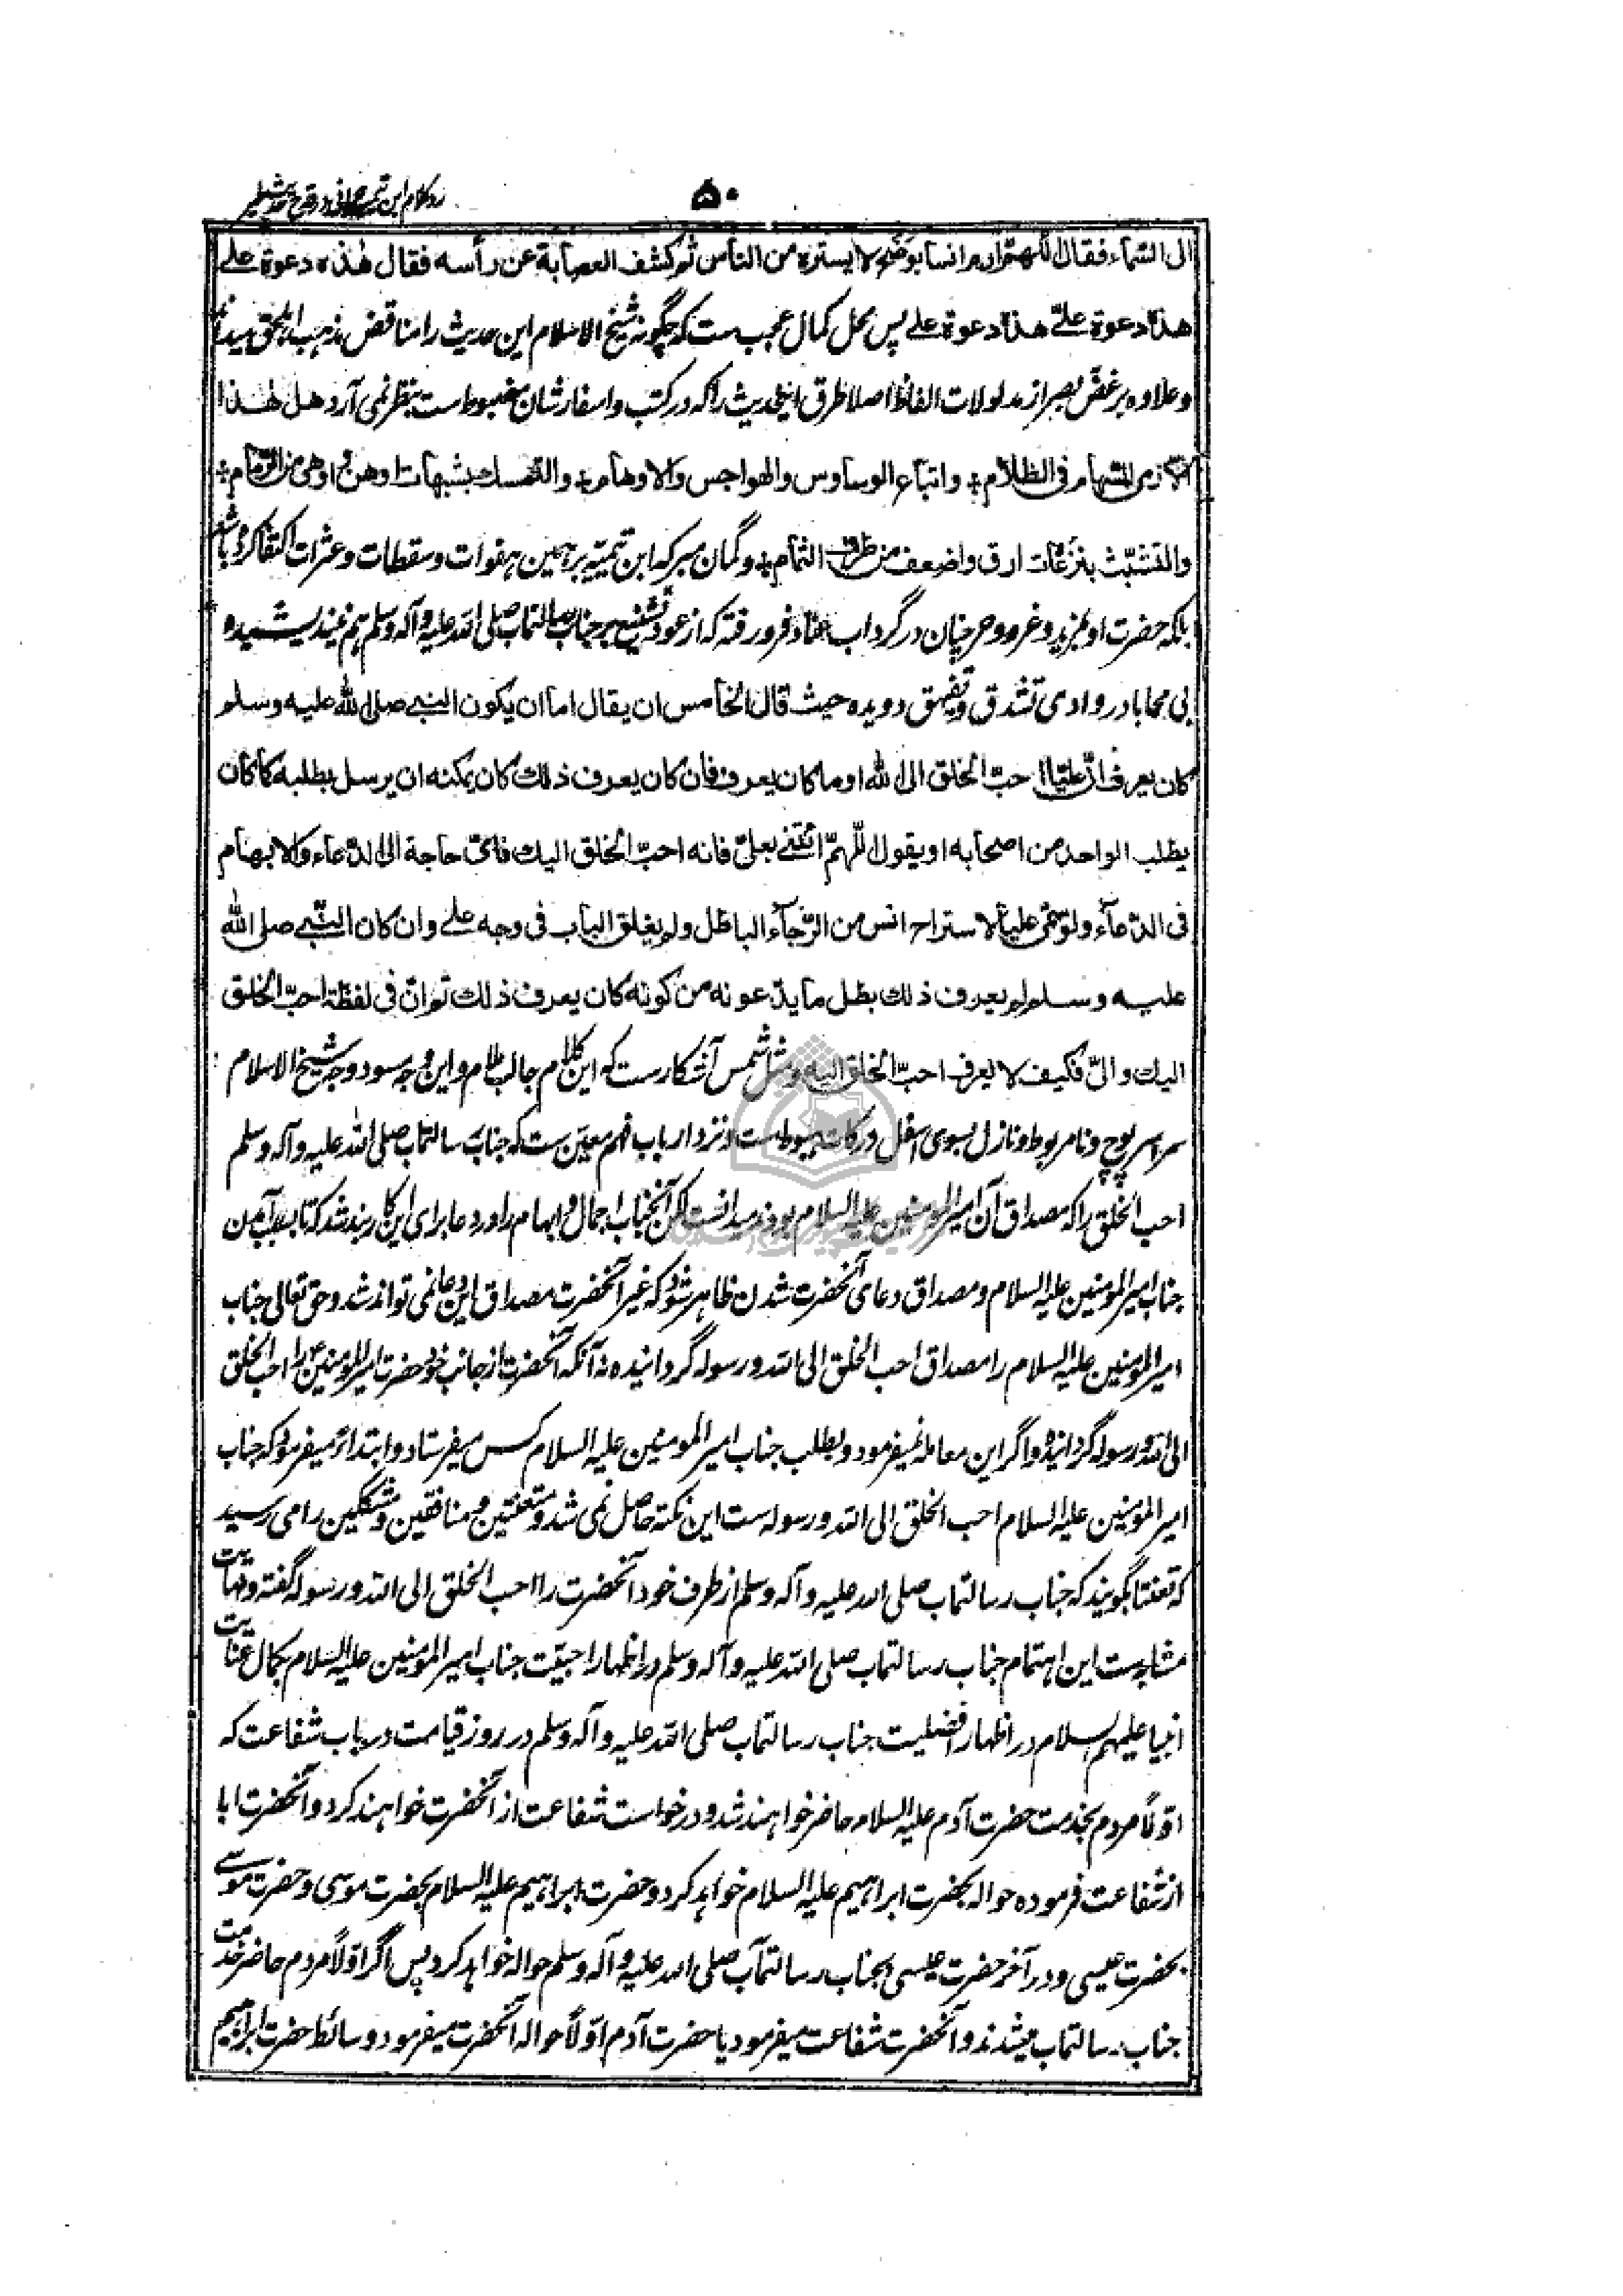 ۵۰
رد کلام ابن تیمیه حرانی در قدح حدیث طیر
الى السّماء فقال اللهمّ ارم انسا بوضح لا يستره من الناس ثم كشف العصابة عن رأسه فقال هذه دعوة علي
هذه دعوة عليّ هذه دعوة علي پس محل کمال عجب ست که چگونه شیخ الاسلام این حدیث را مناقض مذهب اهل حق میداند
و علاوه بر غضّ بصر از مدلولات الفاظ اصلا طرق این حدیث را که در کتب و اسفار شان مضبوط است بنظر نمی آرد هل هذا
الا کرمی السّهام فی الظلام ÷ واتباع الوساوس والهواجس والاوهام ÷ والتمسك بشبهات اوهن و اوهی من الرمام ÷
والتشبّث بنزغات ارق واضعف من الثمام ÷ و گمان مبر که ابن تیمیه بر همین هفوات و سقطات و عثرات اکتفا کرده باشد
بلکه حضرت او بمزید و غر و حر چنان در گرداب عناد فرو رفته که از عود تشنیع بر جناب رسالتمآب صلی الله علیه وآله وسلم هم نیندیشیده
بی محابا در وادی تشدق و تفیهق دویده حیث قال الخامس ان يقال اما ان يكون النبي صلى الله عليه وسلم
كان يعرف انّ عليّا احبّ الخلق الى الله او ما كان يعرف فان كان يعرف ذلك كان يمكنه ان يرسل يطلبه كما كان
يطلب الواحد من اصحابه او يقول اللّهمّ ائتني بعليّ فانه احبّ الخلق اليك فايّ حاجة الى الدّعاء والابهام
في الدّعاء ولو سمّى عليّا لاستراح انس من الرّجاء الباطل ولم يغلق الباب في وجه علي وان كان النبي صلى الله
عليه وسلم لم يعرف ذلك بطل ما يدّعونه من كونه كان يعرف ذلك ثم انّ في لفظة احبّ الخلق
اليك والىّ فكيف لا يعرف احبّ الخلق اليه و مثل شمس آشکارست که این کلام جالب ملام و این وجه سود وجه شیخ الاسلام
سراسر پوچ و نامربوط و نازل بسوی اسفل درکات هبوط ست و نزد ارباب فهم معین ست که جناب رسالتمآب صلی الله علیه وآله وسلم
احب الخلق را که مصداق آن امیرالمؤمنین علیه السلام بود میدانست لکن آنجناب اجمال و ابهام را در دعا برای این کاربند شد که تا بسبب آمدن
جناب امیرالمؤمنین علیه السلام و مصداق دعای آنحضرت شدن ظاهر شود که غیر آنحضرت مصداق این دعا نمی تواند شد و حق تعالی جناب
امیرالمؤمنین علیه السلام را مصداق احب الخلق الی الله و رسوله گردانیده نه آنکه آنحضرت از جانب خود حضرت امیرالمؤمنین ع را احب الخلق
الی الله و رسوله گردانیده و اگر این معامله نمیفرمود و بطلب جناب امیرالمؤمنین علیه السلام کس میفرستاد و ابتداءً میفرمود که جناب
امیرالمؤمنین علیه السلام احب الخلق الی الله و رسوله ست این نکته حاصل نمی شد و متعنتین و منافقین و مشککین را می رسید
که تعنتا بگویند که جناب رسالتمآب صلی الله علیه وآله وسلم از طرف خود آنحضرت را احب الخلق الی الله و رسوله گفته و نهایت
مشابه ست این اهتمام جناب رسالتمآب صلی الله علیه وآله وسلم در اظهار احبیّت جناب امیرالمؤمنین علیه السلام بکمال عنایت
انبیا علیهم السلام در اظهار افضلیت جناب رسالتمآب صلی الله علیه وآله وسلم در روز قیامت در باب شفاعت که
اوّلاً مردم بخدمت حضرت آدم علیه السلام حاضر خواهند شد و درخواست شفاعت از آنحضرت خواهند کرد و آنحضرت ابا
از شفاعت فرموده حواله بحضرت ابراهیم علیه السلام خواهد کرد و حضرت ابراهیم علیه السلام بحضرت موسی و حضرت موسے
بحضرت عیسی و در آخر حضرت عیسی بجناب رسالتمآب صلی الله علیه وآله وسلم حواله خواهد کرد پس اگر اوّلاً مردم حاضر خدمت
جناب رسالتمآب میشدند و آنحضرت شفاعت میفرمود یا حضرت آدم اوّلاً حواله آنحضرت میفرمود و سائط حضرت ابراهیم